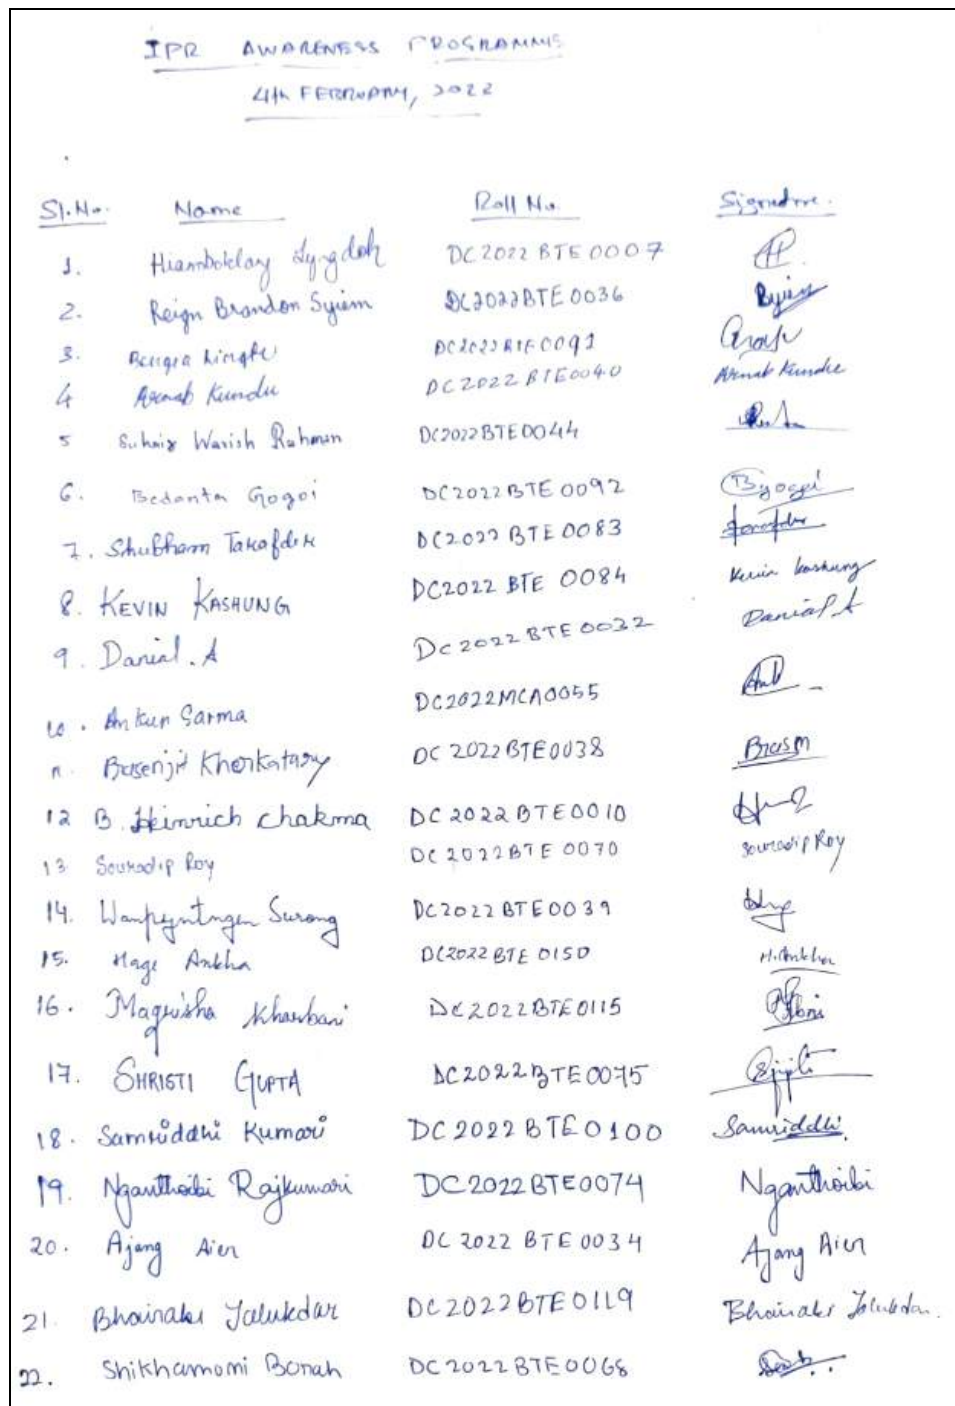 IPR AWARENESS PROGRAMME
4th FEBRUARY, 2022
Sl.No. Name Roll No. Signature.
1. Hiamboklang Lyngdoh DC2022BTE0007
2. Reign Brandon Syiem DC2022BTE0036
3. DC2022BTE0091
4 Arnab Kundu DC2022BTE0040 Arnab Kundu
5 Suhaiz Warish Rahman DC2022BTE0044
6. Bedanta Gogoi DC2022BTE0092 Bgogoi
7. Shubham Tarafder DC2022BTE0083 Tarafder
8. KEVIN KASHUNG DC2022 BTE 0084 Kevin kashung
9. Danial. A DC2022BTE0032 Danial A
10. Ankur Sarma DC2022MCA0055
11. Basenjit Kherkatary DC2022BTE0038
12 B. Heinrich chakma DC2022BTE0010
13 Souradip Roy DC2022BTE0070 Souradip Roy
14. Wanpyntngen Surong DC2022BTE0039
15. Hage Ankha DC2022BTE0150 H. Ankha
16. Maquisha Kharbani DC2022BTE0115
17. SHRISTI GUPTA DC2022BTE0075
18. Samriddhi Kumari DC2022BTE0100 Samriddhi.
19. Nganthoibi Rajkumari DC2022BTE0074 Nganthoibi
20. Ajang Aier DC 2022 BTE 0034 Ajang Aier
21. Bhairabi Talukdar DC2022BTE0119 Bhairabi Talukdar.
22. Shikhamoni Borah DC2022BTE0068